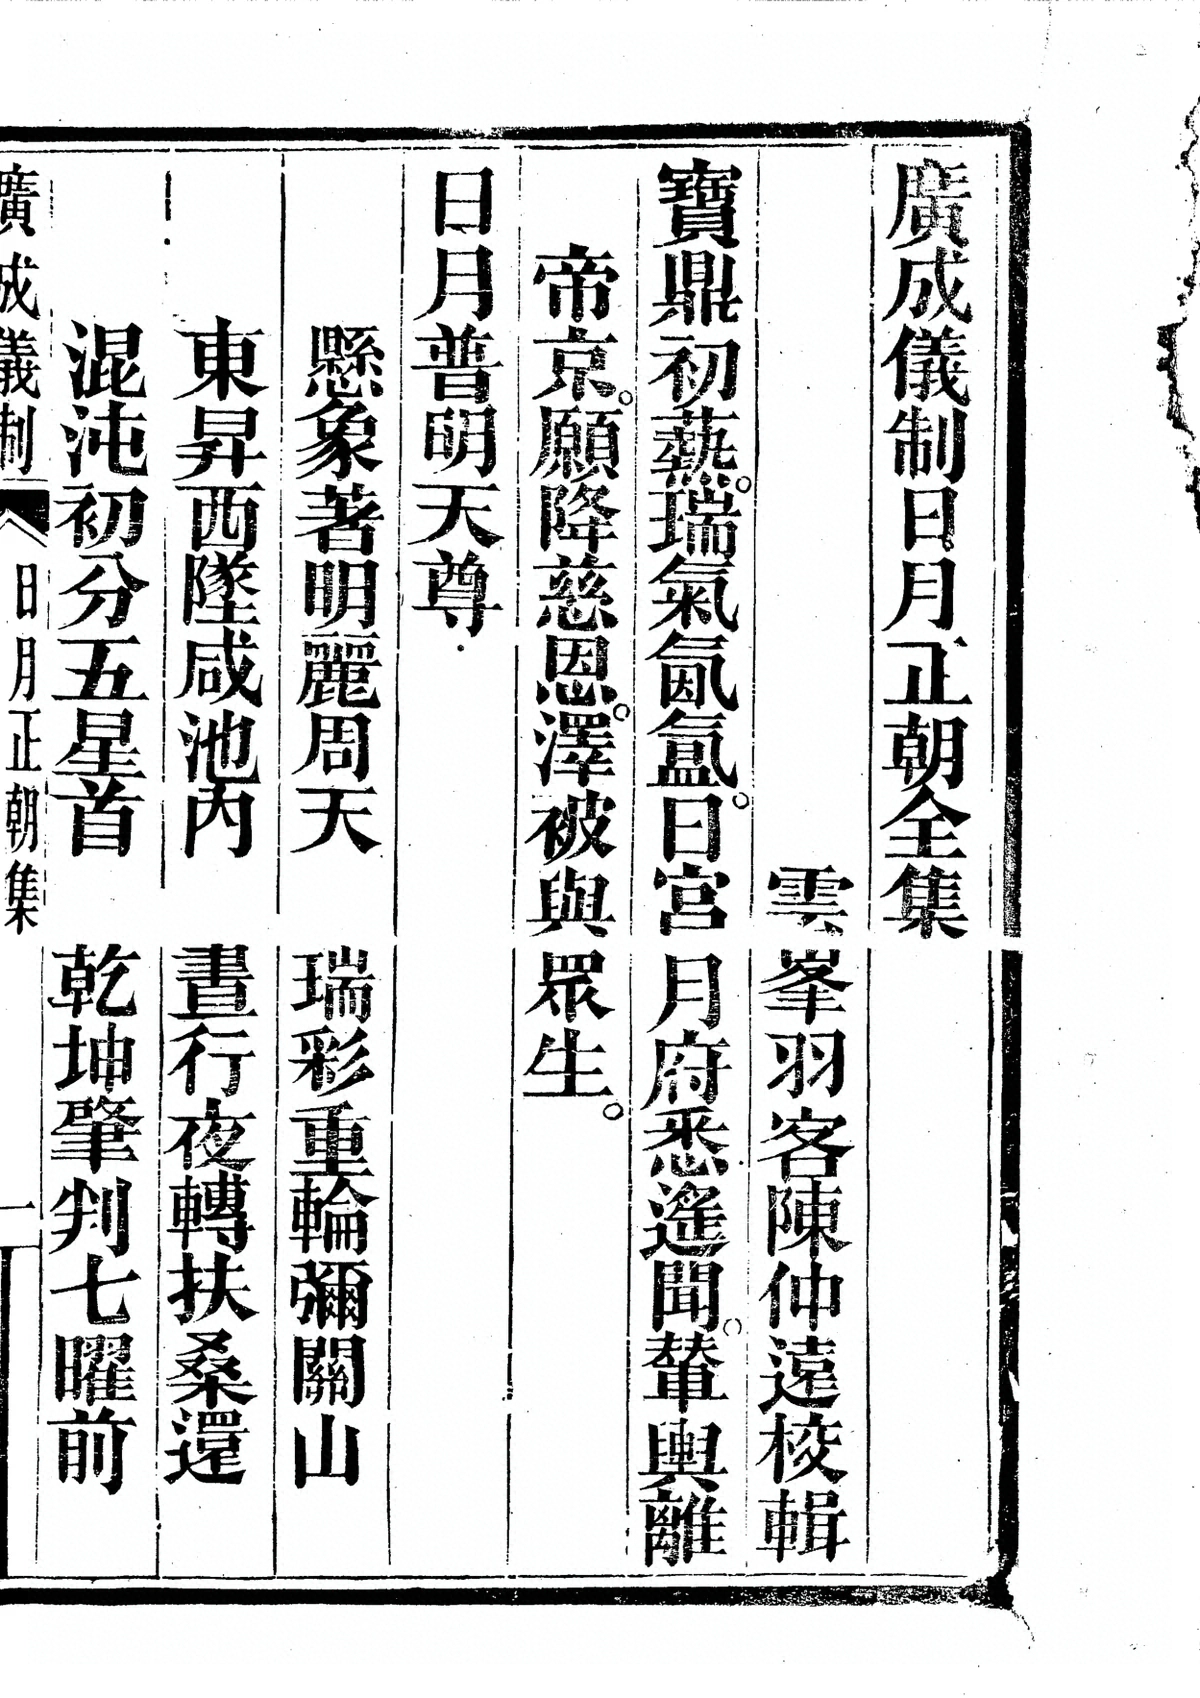 廣成儀制日月正朝全集
雲峯羽客陳仲遠校輯
寶鼎初爇。瑞氣氤氳。日宮月府悉遙聞。輦輿離
帝京。願降慈恩。澤被與眾生。
日月普明天尊
懸象著明麗周天　瑞彩重輪彌關山
東昇西墜咸池內　晝行夜轉扶桑還
混沌初分五星首　乾坤肇判七曜前
廣成儀制　日月正朝集　一